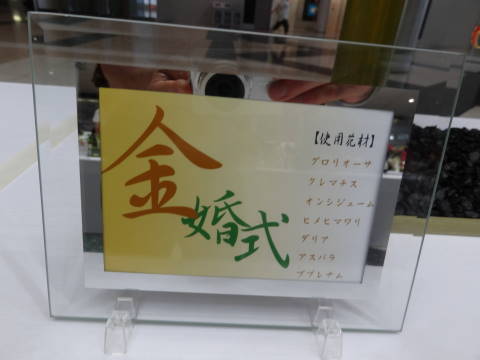 金婚式
【使用花材】
グロリオーサ
クレマチス
オンシジューム
ヒメヒマワリ
ダリア
アスパラ
ブプレナム